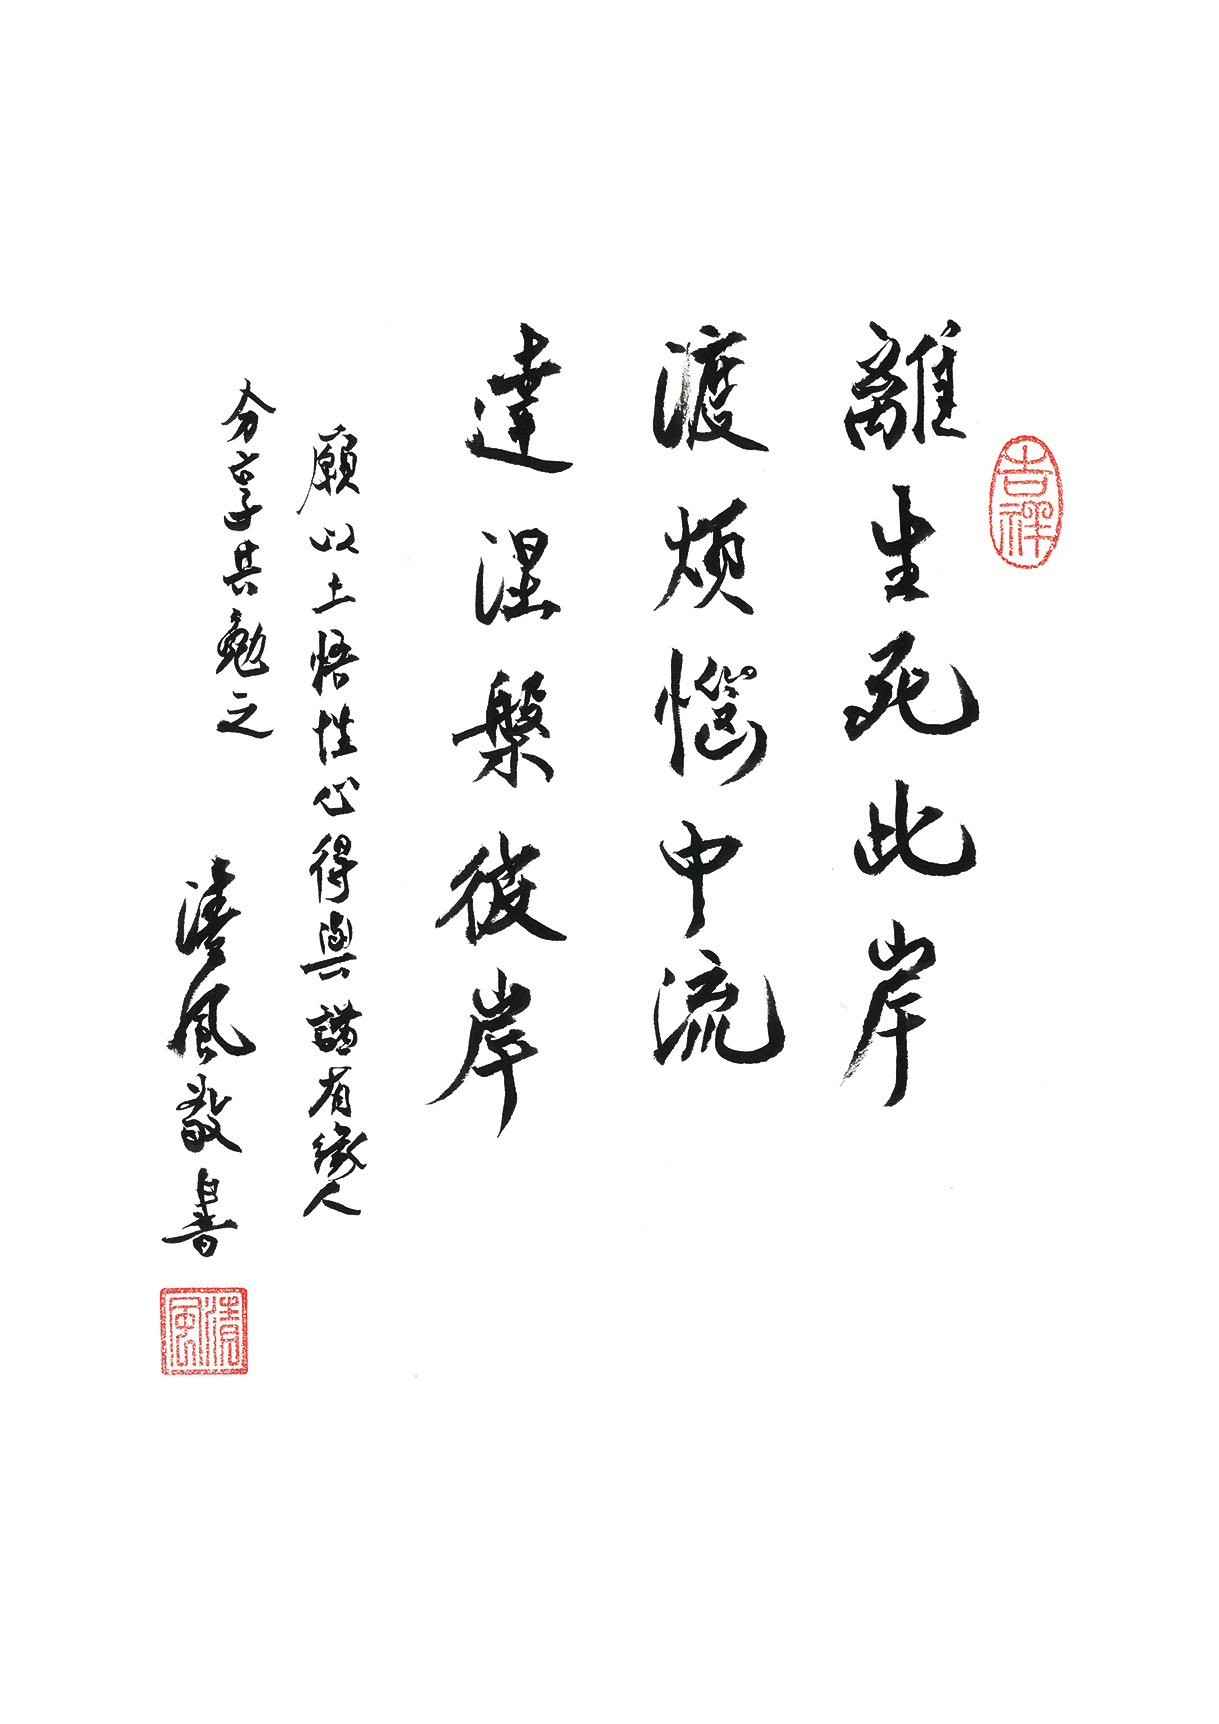 吉祥
離生死此岸
渡煩惱中流
達涅槃彼岸
願以上悟性心得與諸有緣人
分享共勉之
風敬書
風